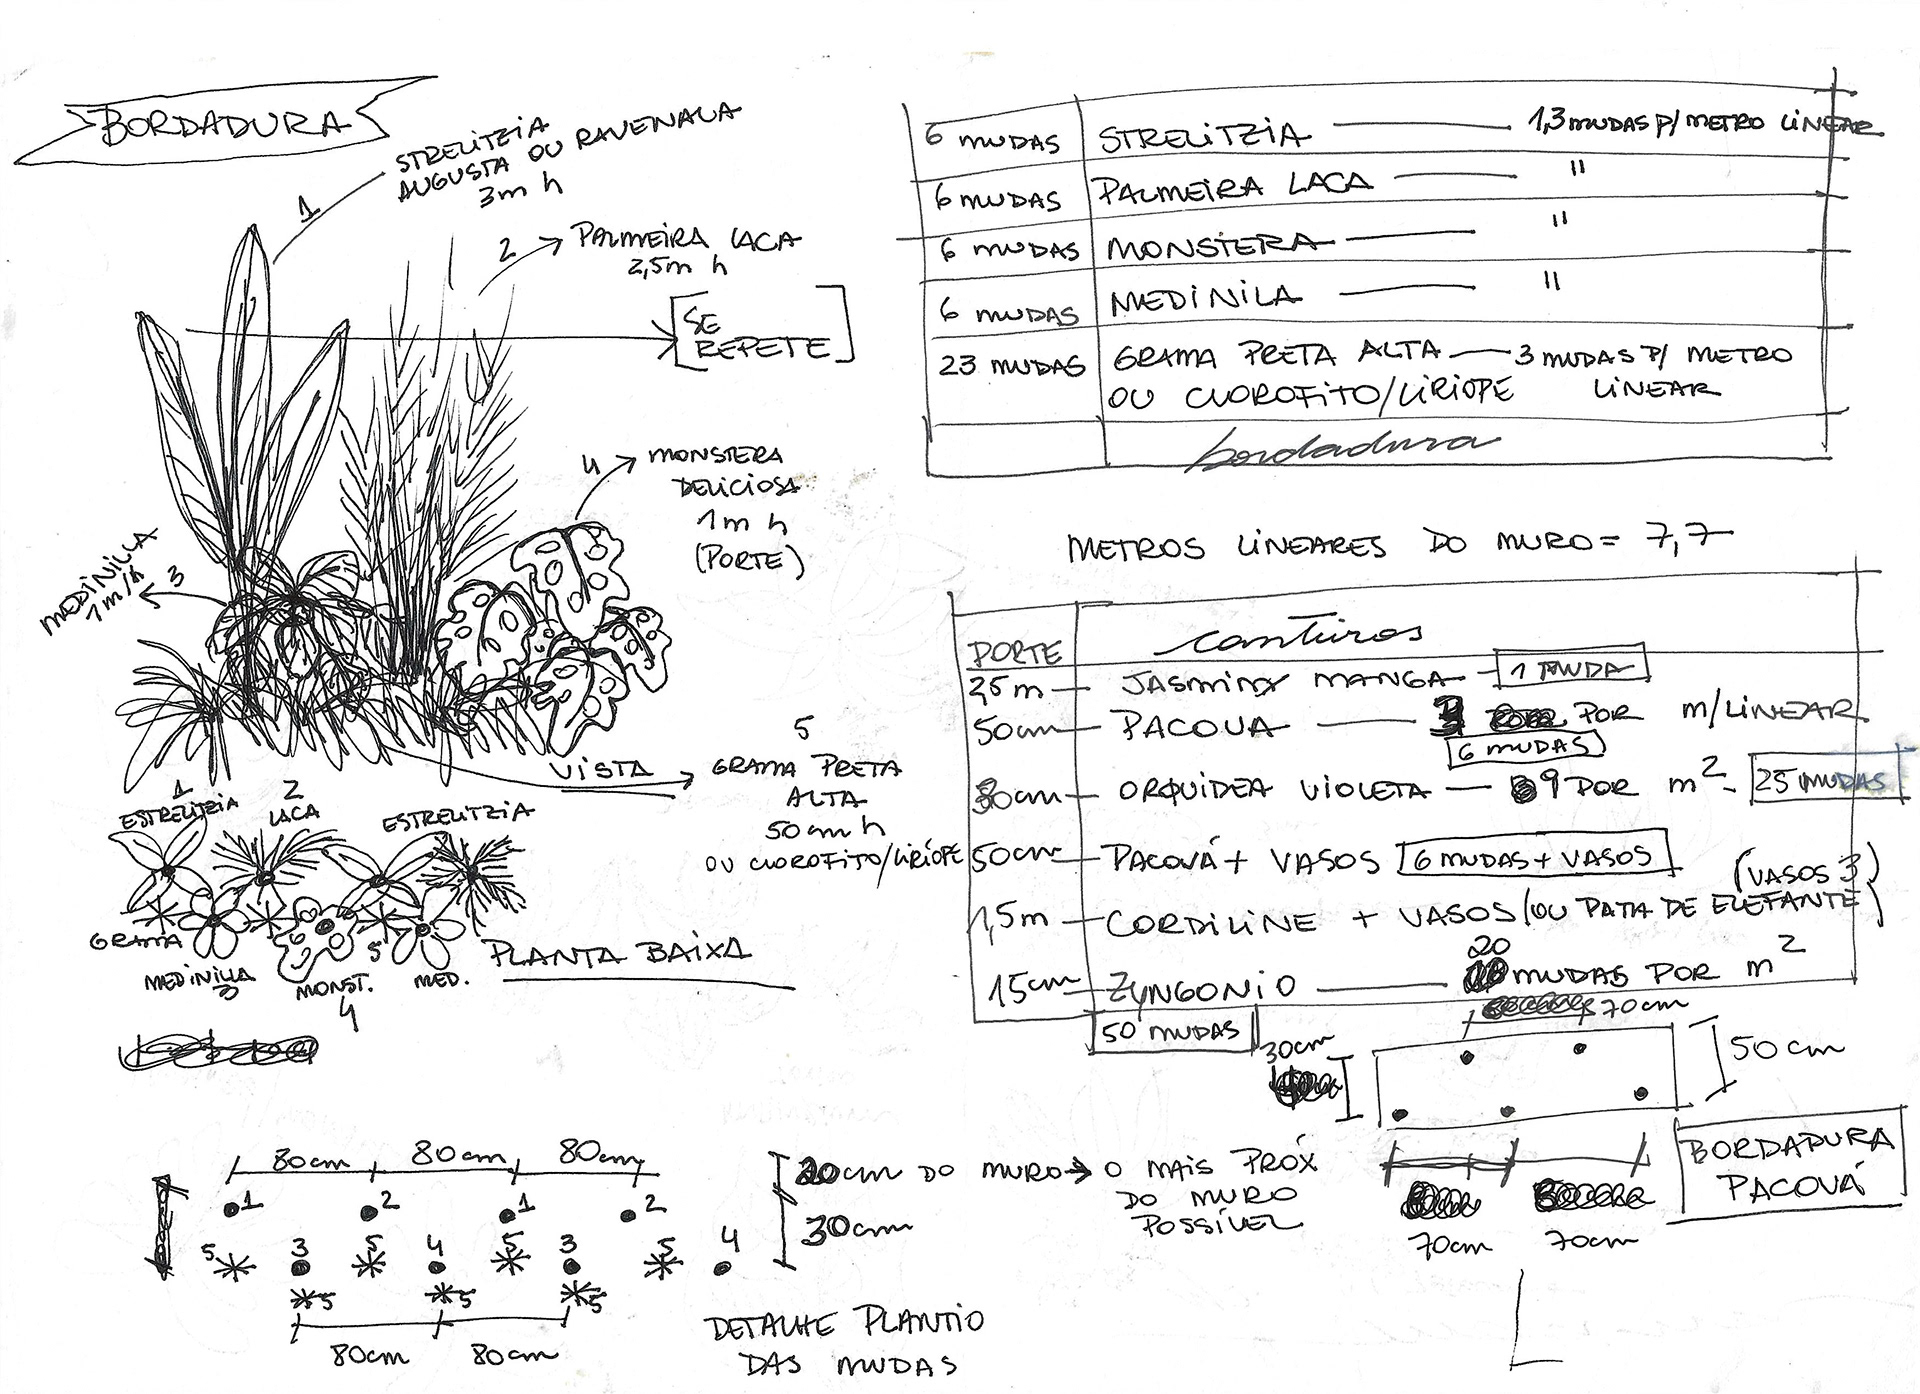 BORDADURA
1
STRELITZIA
AUGUSTA OU RAVENALA
3m h
2 → PALMEIRA LACA
2,5m h
[SE
REPETE]
4 → MONSTERA
DELICIOSA
1m h
(PORTE)
MEDINILLA
1m/h
3
5
VISTA → GRAMA PRETA
ALTA
50cm h
OU CLOROFITO/LIRÍOPE
1
ESTRELITZIA
2
LACA
ESTRELITZIA
GRAMA
5
MEDINILLA
3
MONST.
4
MED.
PLANTA BAIXA
80cm 80cm 80cm
1 2 1 2
5 3 5 4 5 3 5 4
5 5 5
80cm 80cm
20cm DO MURO → O MAIS PRÓX
DO MURO
POSSÍVEL
30cm
DETALHE PLANTIO
DAS MUDAS
6 MUDAS STRELITZIA — 1,3 MUDAS P/ METRO LINEAR
6 MUDAS PALMEIRA LACA — "
6 MUDAS MONSTERA — "
6 MUDAS MEDINILA — "
23 MUDAS GRAMA PRETA ALTA — 3 MUDAS P/ METRO
OU CLOROFITO/LIRIOPE LINEAR
bordadura
METROS LINEARES DO MURO = 7,7
PORTE canteiros
2,5m — JASMIM MANGA — 1 MUDA
50cm — PACOVA — 3 POR m/LINEAR
6 MUDAS
30cm — ORQUIDEA VIOLETA — 9 POR m² - 25 MUDAS
50cm — PACOVÁ + VASOS 6 MUDAS + VASOS
(VASOS 3)
1,5m — CORDILINE + VASOS (OU PATA DE ELEFANTE)
20
15cm — ZYNGONIO — MUDAS POR m²
50 MUDAS
70cm
30cm
50cm
70cm 70cm
BORDADURA
PACOVÁ